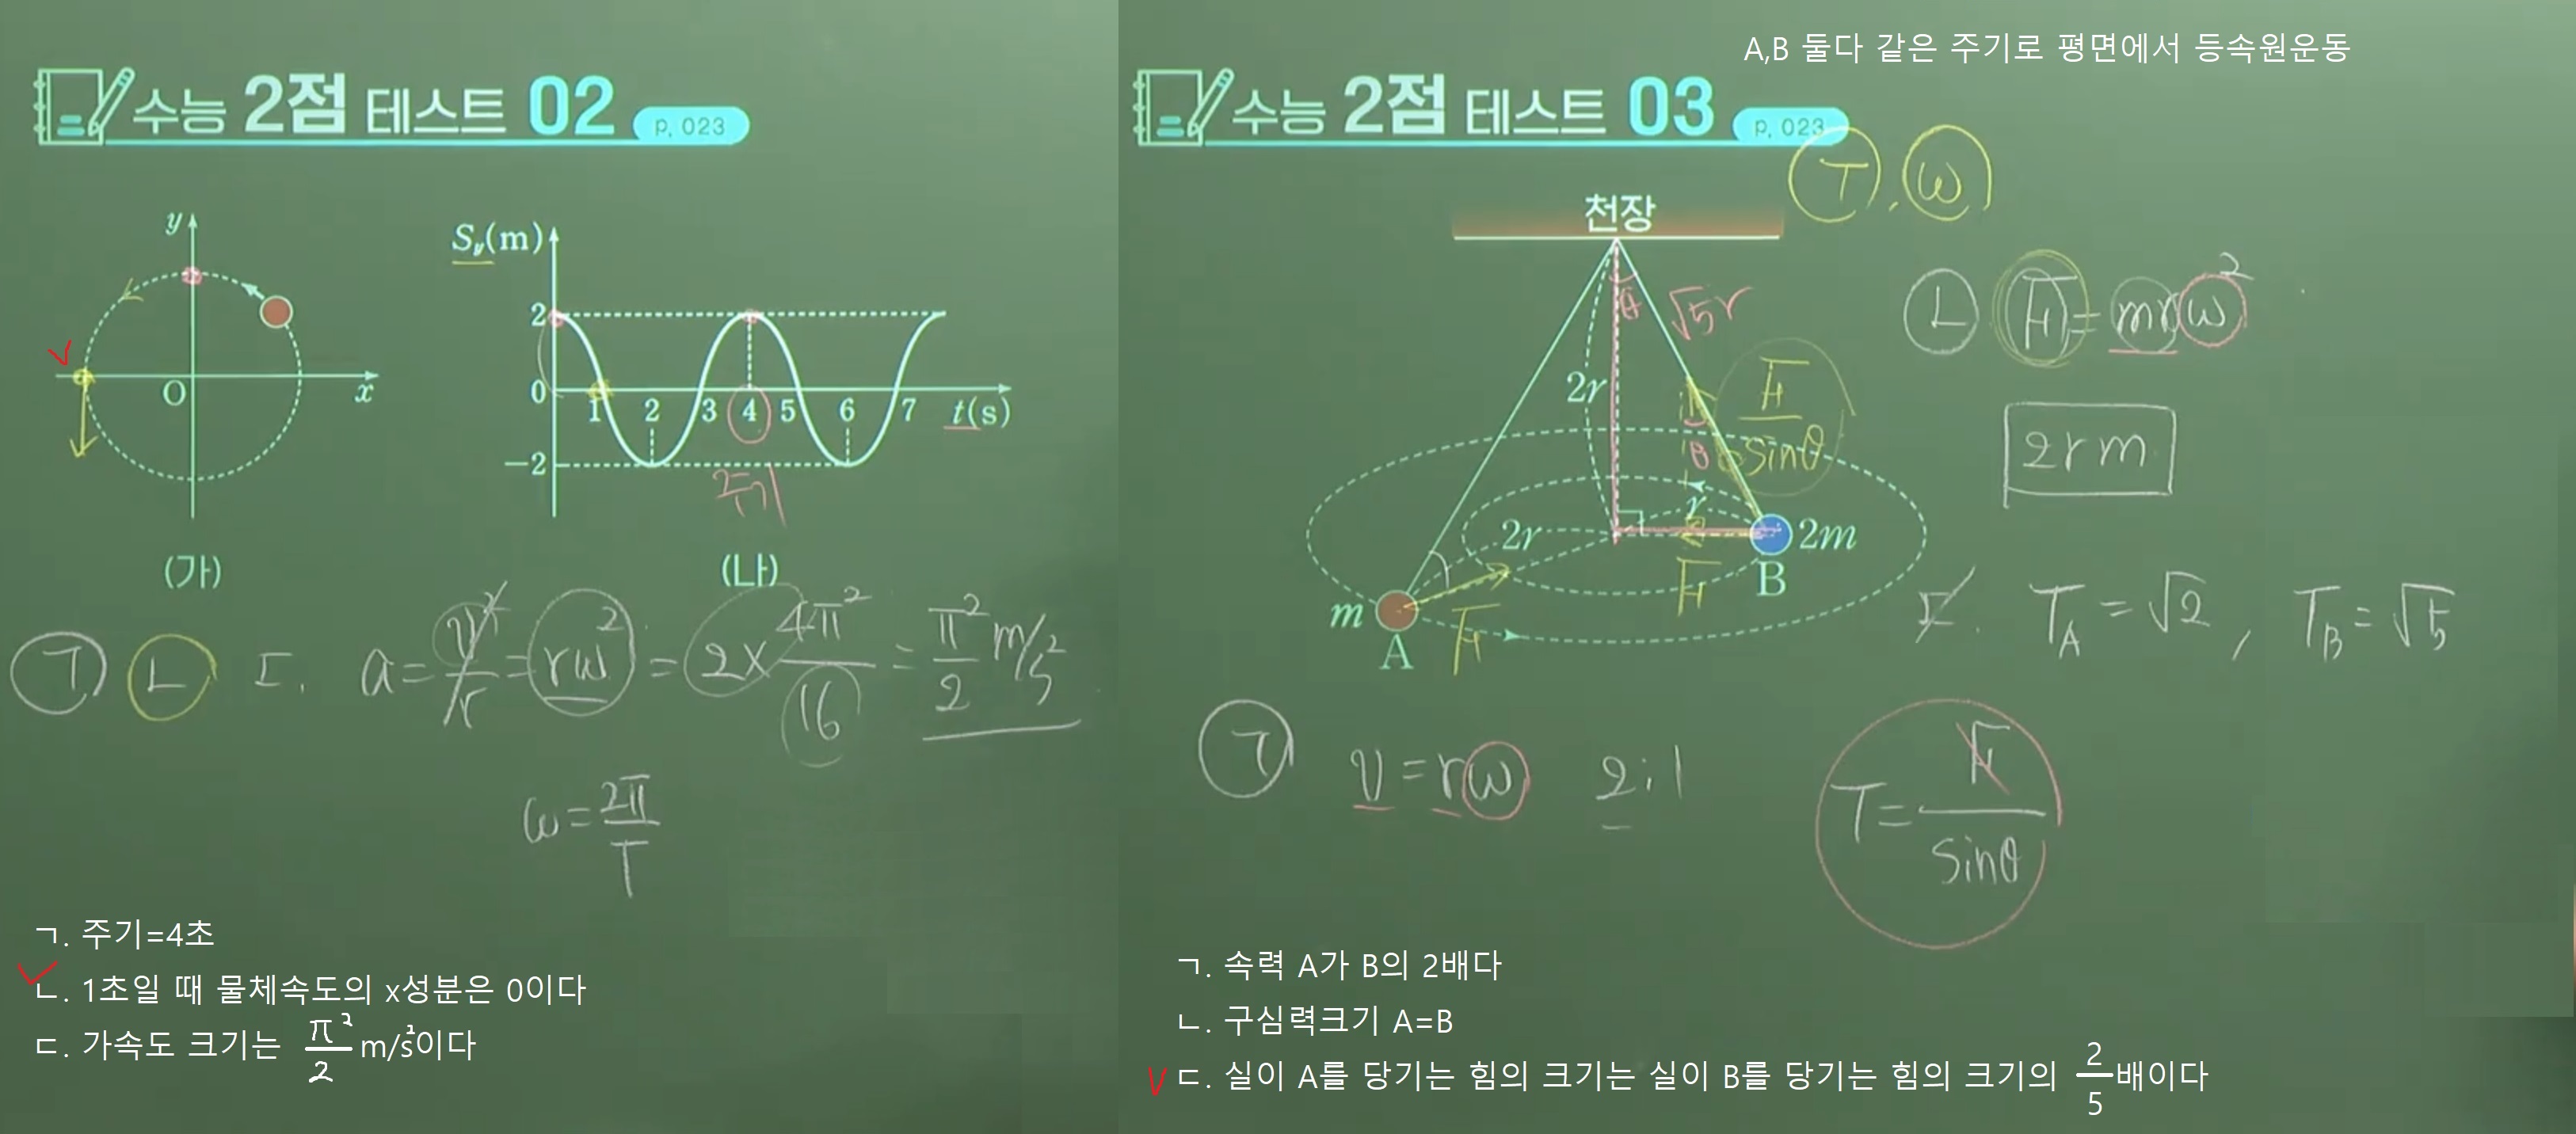 수능 2점 테스트 02 p. 023
y
O
x
(가)
S_y(m)
2
0
-2
1 2 3 4 5 6 7 t(s)
주기
(나)
ㄱ ㄴ ㄷ. a = v²/r = rω² = 2 × 4π²/16 = π²/2 m/s²
ω = 2π/T
ㄱ. 주기=4초
ㄴ. 1초일 때 물체속도의 x성분은 0이다
ㄷ. 가속도 크기는 π²/2 m/s²이다
A,B 둘다 같은 주기로 평면에서 등속원운동
수능 2점 테스트 03 p. 023
T, ω
천장
θ
√5r
2r
F/sinθ
θ
r
2r
F
2m
B
m
A
F
ㄴ F = mrω²
2rm
ㄷ. T_A = √2, T_B = √5
ㄱ v = rω 2:1
T = F/sinθ
ㄱ. 속력 A가 B의 2배다
ㄴ. 구심력크기 A=B
ㄷ. 실이 A를 당기는 힘의 크기는 실이 B를 당기는 힘의 크기의 2/5배이다